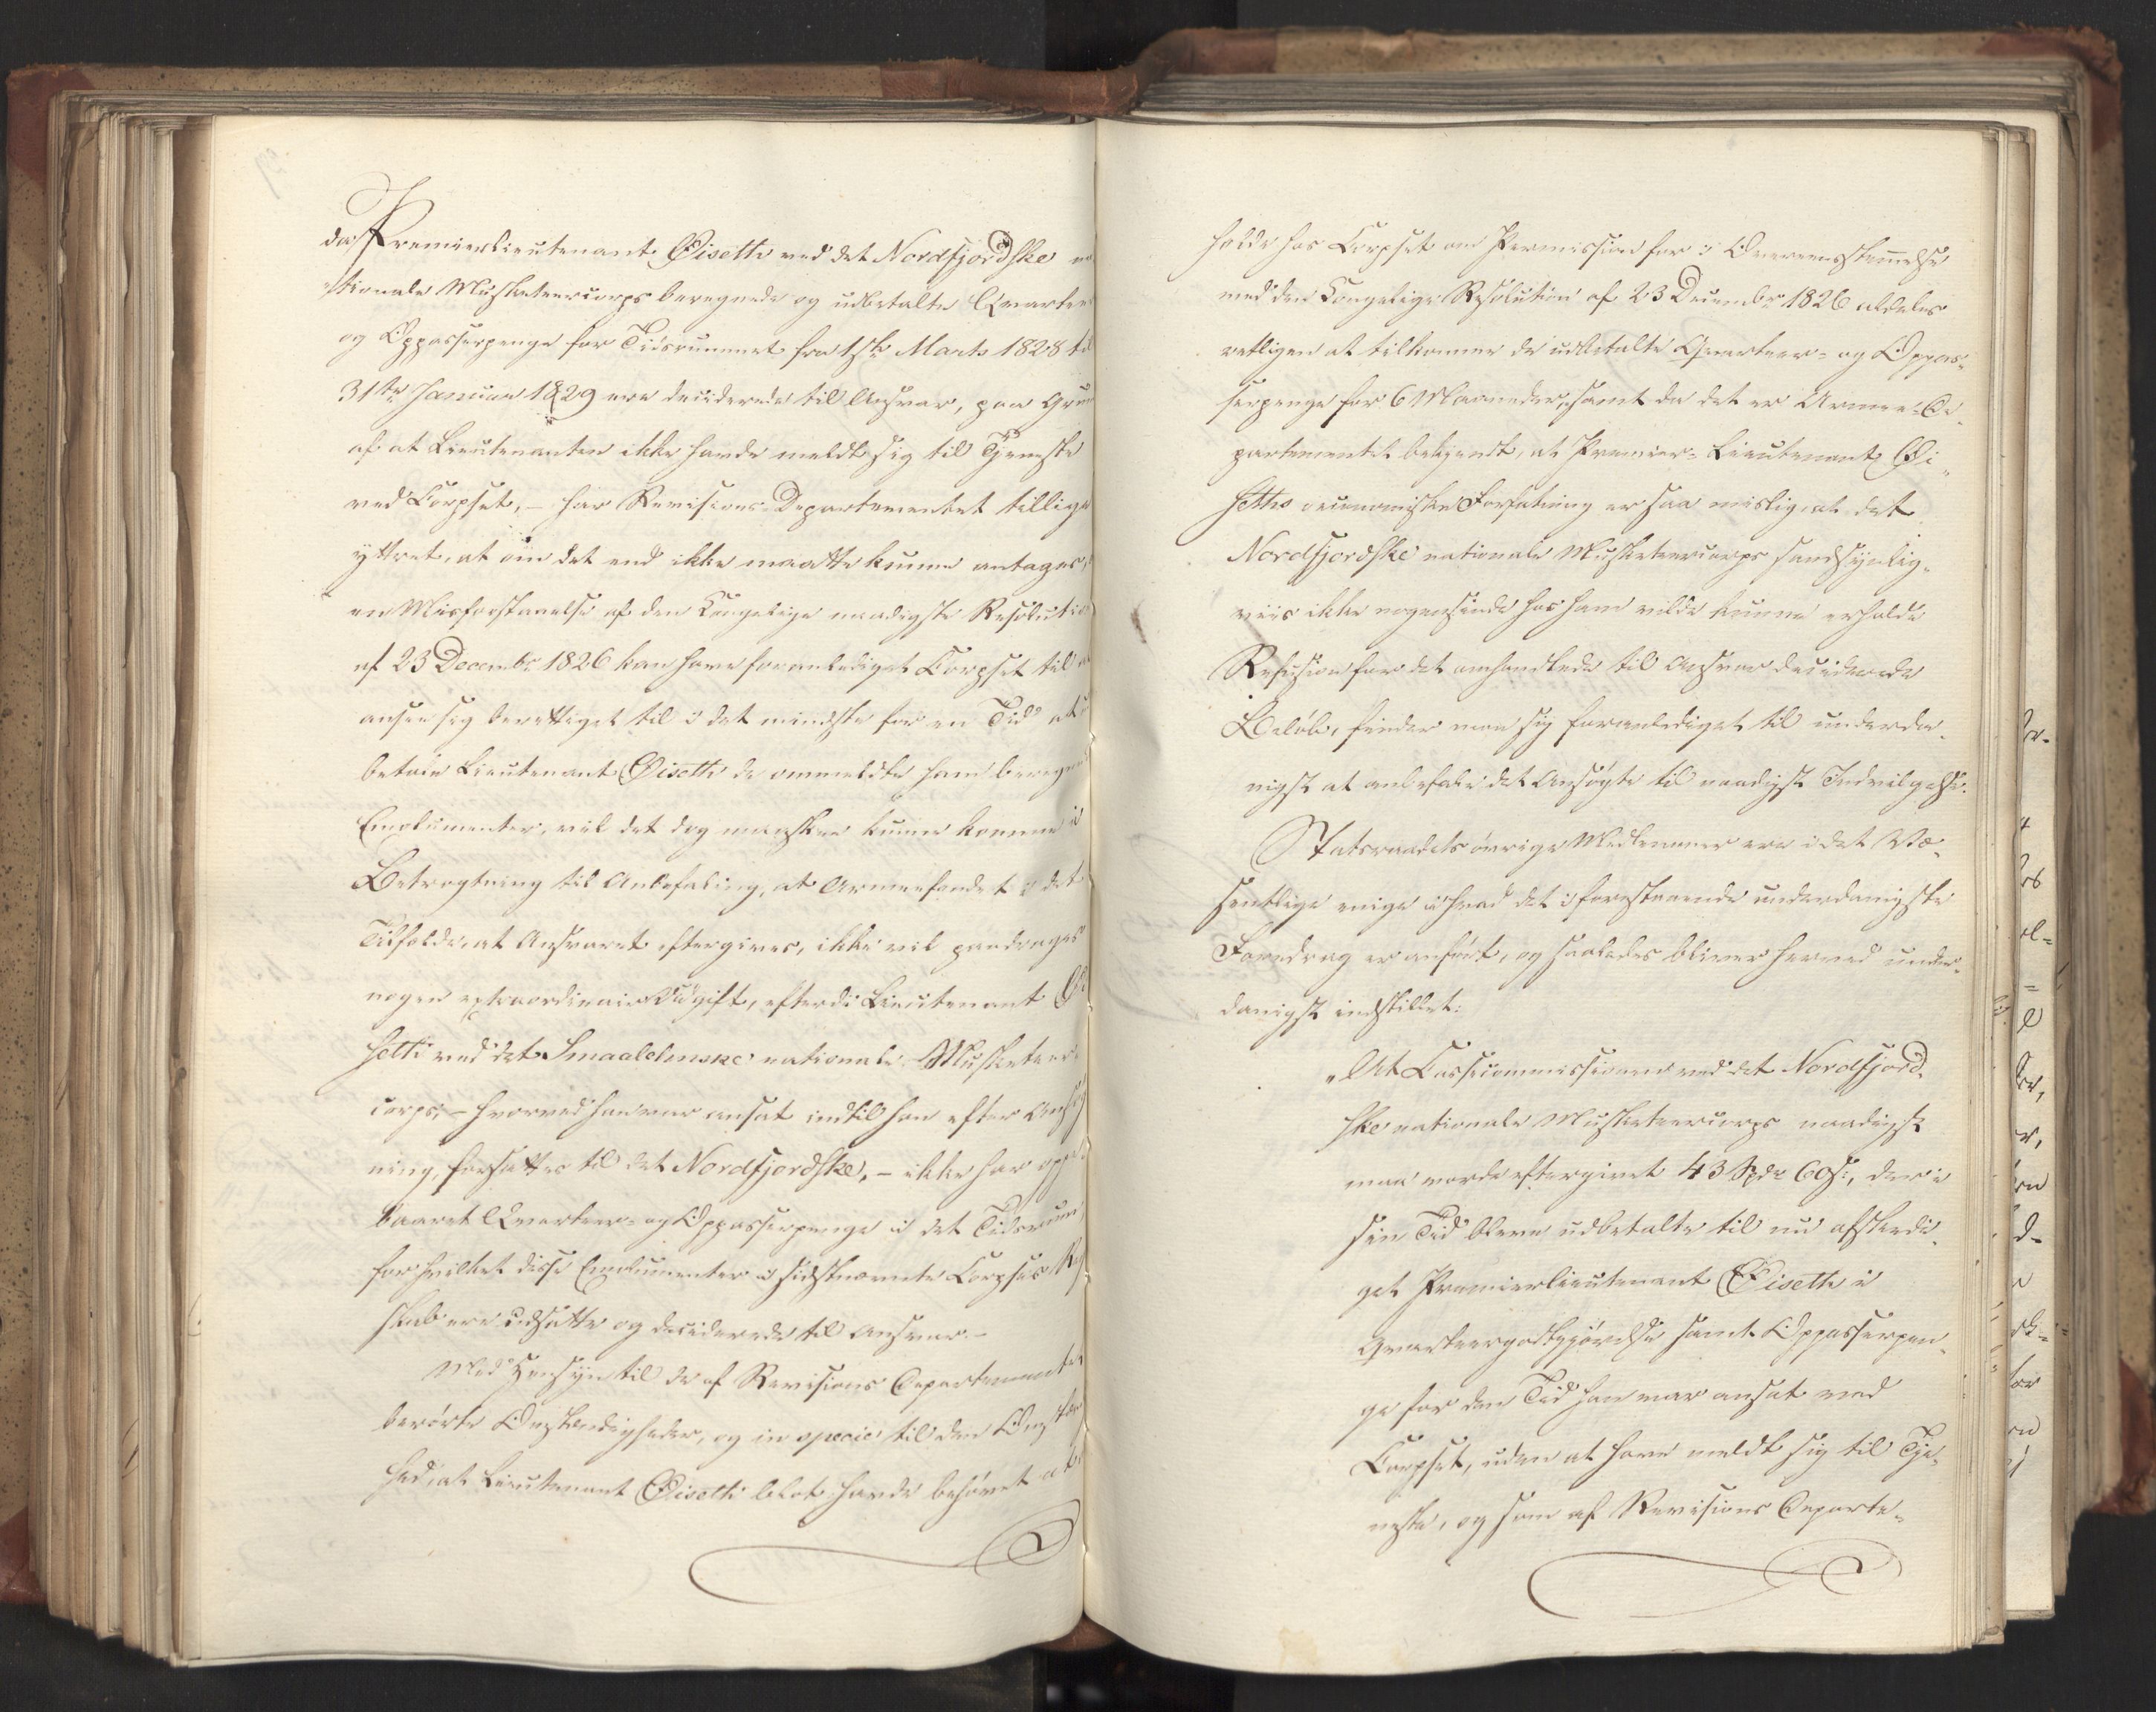 da Premierlieutenant Øiseth ved det Nordfjordske na
tionale Musketeercorps beregnede og udbetalte Qvarteer
og Oppasserpenge for Tidsrummet fra 1ste Marts 1828 til
31te Januar 1829 ere deciderede til Ansvar, paa Grund
af at Lieutenanten ikke havde meldt sig til Tjeneste
ved Corpset, – har Revisions-Departementet tillige
yttret, at om det end ikke maatte kunne antages,
en Misforstaaelse af den Kongelige naadigste Resolution
af 23 Decembr 1826 kan have foranlediget Corpset til at
ansee sig berettiget til i det mindste for en Tid at
betale Lieutenant Øiseth de ommeldte ham beregnede
Emolumenter, vil det dog maaskee kunne komme i
Betragtning til Anbefaling, at Armeefondet i det
Tilfælde, at Ansvaret eftergives, ikke vil paadrages
nogen extraordinair Udgift, efterdi Lieutenant Øi
seth ved det Smaalehnske nationale Musketeer-
corps, – hvorved han var ansat indtil han efter Ansøg
ning forsattes til det Nordfjordske, – ikke har oppe
baaret Qvarteer- og Oppasserpenge i det Tidsrum,
for hvilket disse Emolumenter i sidstnævnte Corpses Regn
skab ere udsatte og deciderede til Ansvar. –
Med Hensyn til de af Revisions Departementet
berørte Omstændigheder, og in specie til den Omstæn
hed, at Lieutenant Øiseth blot havde behøvet at
holde hos Corpset om Permission for i Overeensstemmelse
med den Kongelige Resolution af 23 Decembr 1826 aldeles
retligen at tilkomme de udbetalte Qvarteer- og Oppas-
serpenge for 6 Maaneder, samt da det er Armee-De-
partementet bekjendt, at Premier-Lieutenant Øi-
seths oeconomiske Forfatning er saa mislig, at det
Nordfjordske nationale Musketeercorps sandsynlig-
viis ikke nogensinde hos ham vilde kunne erholde
Refusion for det omhandlede til Ansvar deciderede
Beløb, finder man sig foranlediget til underda-
nigst at anbefale det Ansøgte til naadigst Indvilgelse.
Statsraadets øvrige Medlemmer ere i det Væ-
sentlige enige i hvad det i forestaaende underdanigste
Foredrag er anført, og saaledes bliver herved under-
danigst indstillet:
„At Cassecommissionen ved det Nordfjord-
ske nationale Musketeercorps naadigst
maa vorde eftergivet 43 Spdr 60 s:, der i
sin Tid bleve udbetalte til nu afskedi-
get Premierlieutenant Øiseth i
Qvarteergodtgjørelse samt Oppasserpen-
ge for den Tid han var ansat ved
Corpset, uden at have meldt sig til Tje-
neste, og som af Revisions Departe-